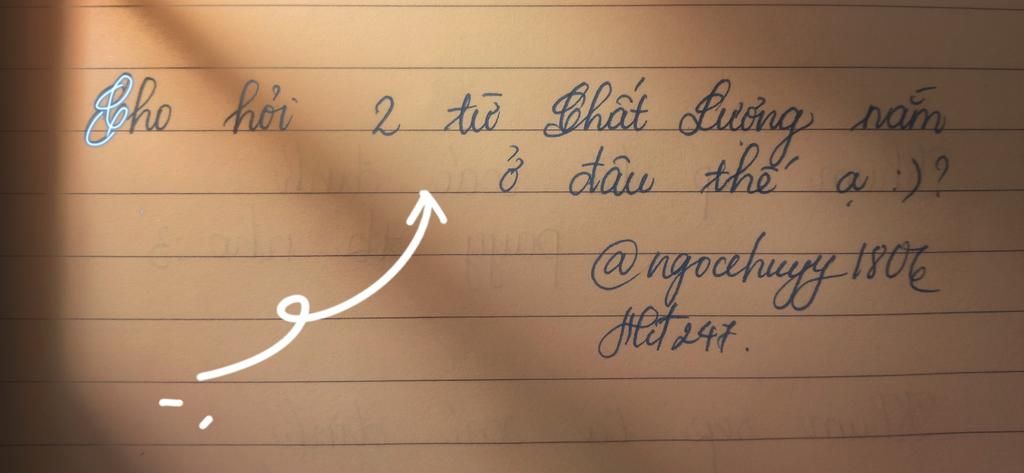 Cho hỏi 2 từ Chất Lượng nằm
ở đâu thế ạ :)?
@ngocehuyy1806
Hit247.